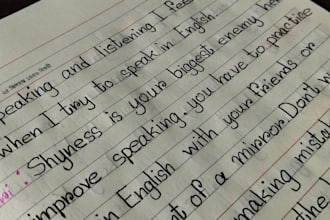 speaking and listening I feel
when I try to speak in English.
: Shyness is your biggest enemy her
improve speaking, you have to practice
in English with your friends or
nt of a mirror. Don't w
making mista